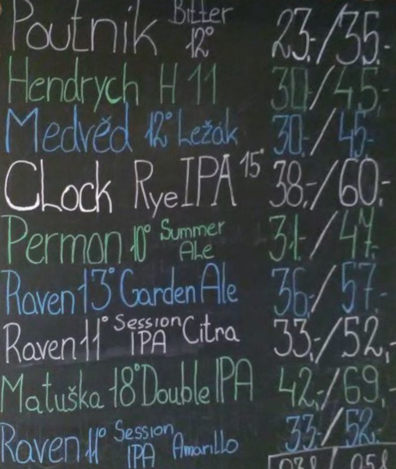 Poutník Bitter 12° 23,-/35,-
Hendrych H 11 30,-/45,-
Medvěd 12° Ležák 30,-/45,-
CLock Rye IPA 15° 38,-/60,-
Permon 10° Summer Ale 31,-/47,-
Raven 13° Garden Ale 36,-/57,-
Raven 11° Session IPA Citra 33,-/52,-
Matuška 18° Double IPA 42,-/69,-
Raven 11° Session IPA Amarillo 33,-/52,-